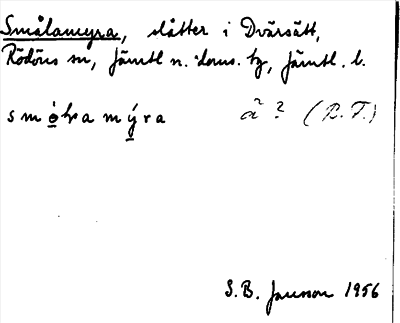 Smålamyra, slåtter i Dvärsätt,
Rödöns sn, Jämtl n. doms. tg, Jämtl. l.
smólamýra ã ? (P.F.)
S.B. Jansson 1956